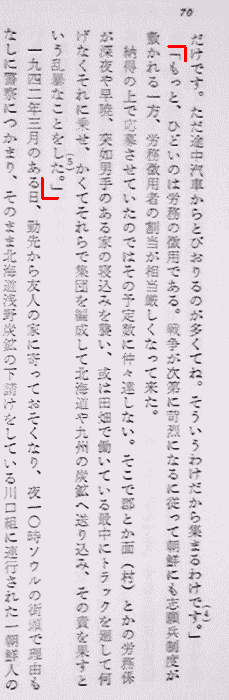 70
だけです。ただ途中汽車からとびおりるのが多くてね。そういうわけだから集まるわけです。」(4)
「もっと、ひどいのは労務の徴用である。戦争が次第に苛烈になるに従って朝鮮にも志願兵制度が
敷かれる一方、労務徴用者の割当が相当厳しくなって来た。
納得の上で応募させていたのではその予定数に仲々達しない。そこで郡とか面(村)とかの労務係
が深夜や早暁、突如男手のある家の寝込みを襲い、或は田畑で働いている最中にトラックを廻して何
げなくそれに乗せ、かくてそれらで集団を編成して北海道や九州の炭鉱へ送り込み、その責を果すと
いう乱暴なことをした。」(5)
一九四二年三月のある日、勤先から友人の家に寄っておそくなり、夜一〇時ソウルの街頭で理由も
なしに警察につかまり、そのまま北海道浅野炭鉱の下請けをしている川口組に連行された一朝鮮人の